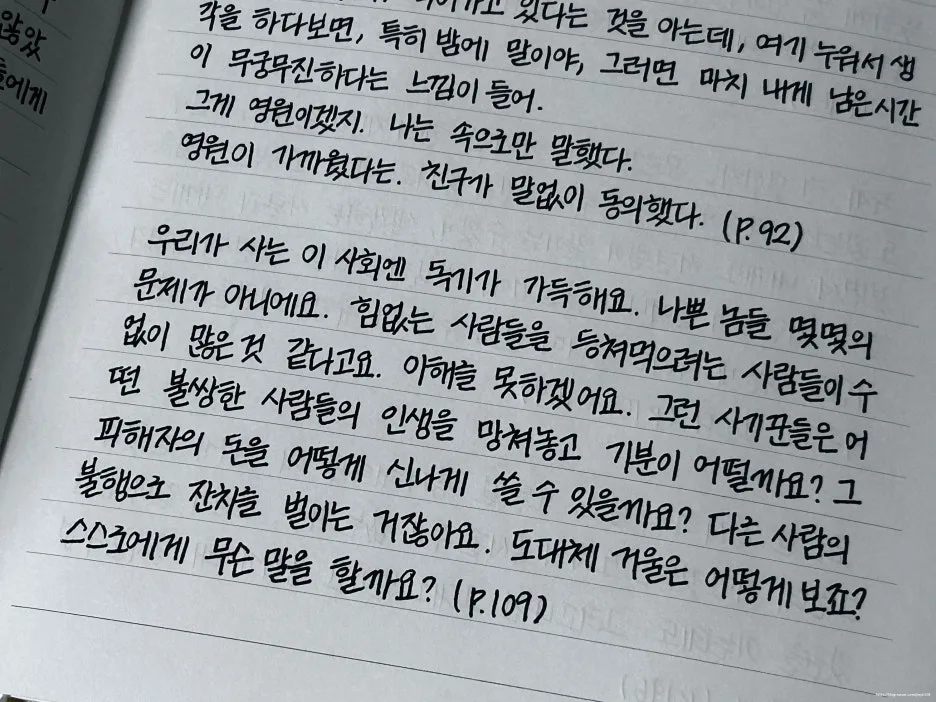 않았
들에게
있다는 것을 아는데, 여기 누워서 생
각을 하다보면, 특히 밤에 말이야, 그러면 마치 내게 남은 시간
이 무궁무진하다는 느낌이 들어.
그게 영원이겠지. 나는 속으로만 말했다.
영원이 가까웠다는. 친구가 말없이 동의했다. (P.92)
우리가 사는 이 사회엔 독기가 가득해요. 나쁜 놈들 몇몇의
문제가 아니에요. 힘없는 사람들을 등쳐먹으려는 사람들이 수
없이 많은 것 같다고요. 이해를 못하겠어요. 그런 사기꾼들은 어
떤 불쌍한 사람들의 인생을 망쳐놓고 기분이 어떨까요? 그
피해자의 돈을 어떻게 신나게 쓸 수 있을까요? 다른 사람의
불행으로 잔치를 벌이는 거잖아요. 도대체 거울은 어떻게 보죠?
스스로에게 무슨 말을 할까요? (P.109)